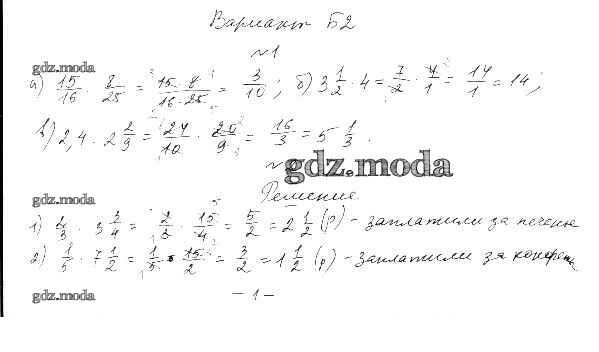 Вариант Б2
№1
gdz.moda
а) 15/16 · 8/25 = 15·8/16·25 = 3/10; б) 3 1/2 · 4 = 7/2 · 4/1 = 14/1 = 14;
в) 2,4 · 2 2/9 = 24/10 · 20/9 = 16/3 = 5 1/3.
gdz.moda
Решение
gdz.moda
1) 2/3 · 3 3/4 = 2/3 · 15/4 = 5/2 = 2 1/2 (р) - заплатили за печенье
2) 1/5 · 7 1/2 = 1/5 · 15/2 = 3/2 = 1 1/2 (р) - заплатили за
gdz.moda
- 1 -